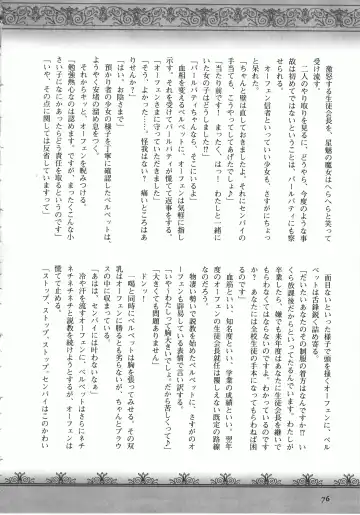 激怒する生徒会長を、星魅の魔女はへらへらと笑って
受け流す。
二人のやり取りを見るに、どうやら、今度のような事
故は初めてではないということは、パールパティにも察
せられる。
オーフェン信者といっていい少女も、さすがにちょっ
と呆れた。
「ちゃんと壁は直しておきましたよ。それにセンパイの
手当ても、こうやってしてあげたでしょ♪」
「当たり前です!　まったく、はっ!　わたしと一緒に
いた女の子はどうしました!?」
「パールパティちゃんなら、そこにいるよ」
血相を変えるベルベットに、オーフェンは気軽に指し
示す。それを受けてパールパティが慌てて返事をする。
「はい、オーフェンさまに守っていただきました」
「そう、よかった⋯⋯。怪我はない?　痛いところはあ
りませんか?」
「はい。お陰さまで」
預かり者の少女の様子を丁寧に確認したベルベットは、
ようやく安堵の溜め息をつく。
それからキッと、オーフェンを睨みつける。
「勉強熱心なのは認めます。ですが、まったくこんな小
さい子になにかあったらどう責任を取るというのです」
「いや、その点に関しては反省していますって」
面目ないといった様子で頭を掻くオーフェンに、ベル
ベットは舌鋒鋭く詰め寄る。
「だいたいなんですか、その制服の着方はなんですか!?　い
くら放課後だからといってたるんでいます。わたしが
卒業したら、嫌でも来年度はあなたに生徒会長を継いで
もらわなくてはならないのですよ。わかっているのです
か?　あなたには全校生徒の手本になってもらわねば困
るのです」
血筋といい、知名度といい、学業の成績といい、翌年
度のオーフェンの生徒会長就任は覆しえない既定の路線
なのだろう。
物凄い勢いで説教を始めたベルベットに、さすがのオ
ーフェンも辟易している表情で言い訳する。
「いやでも、わたしって胸大きいし、だから苦しくって♪」
「大きくても問題ありません」
ドンッ!
一喝と同時にベルベットは胸を張ってみせる。その双
乳はオーフェンに勝るとも劣らないが、ちゃんとブラウ
スの中に収まっている。
「あはは、センパイには叶わないなぁ」
冷や汗を流すオーフェンに、ベルベットはさらにネチ
ネチネチと説教を続けようとするが、オーフェンは
慌てて止める。
「ストップ、ストップ、ストップ、センパイはこのかわい
76